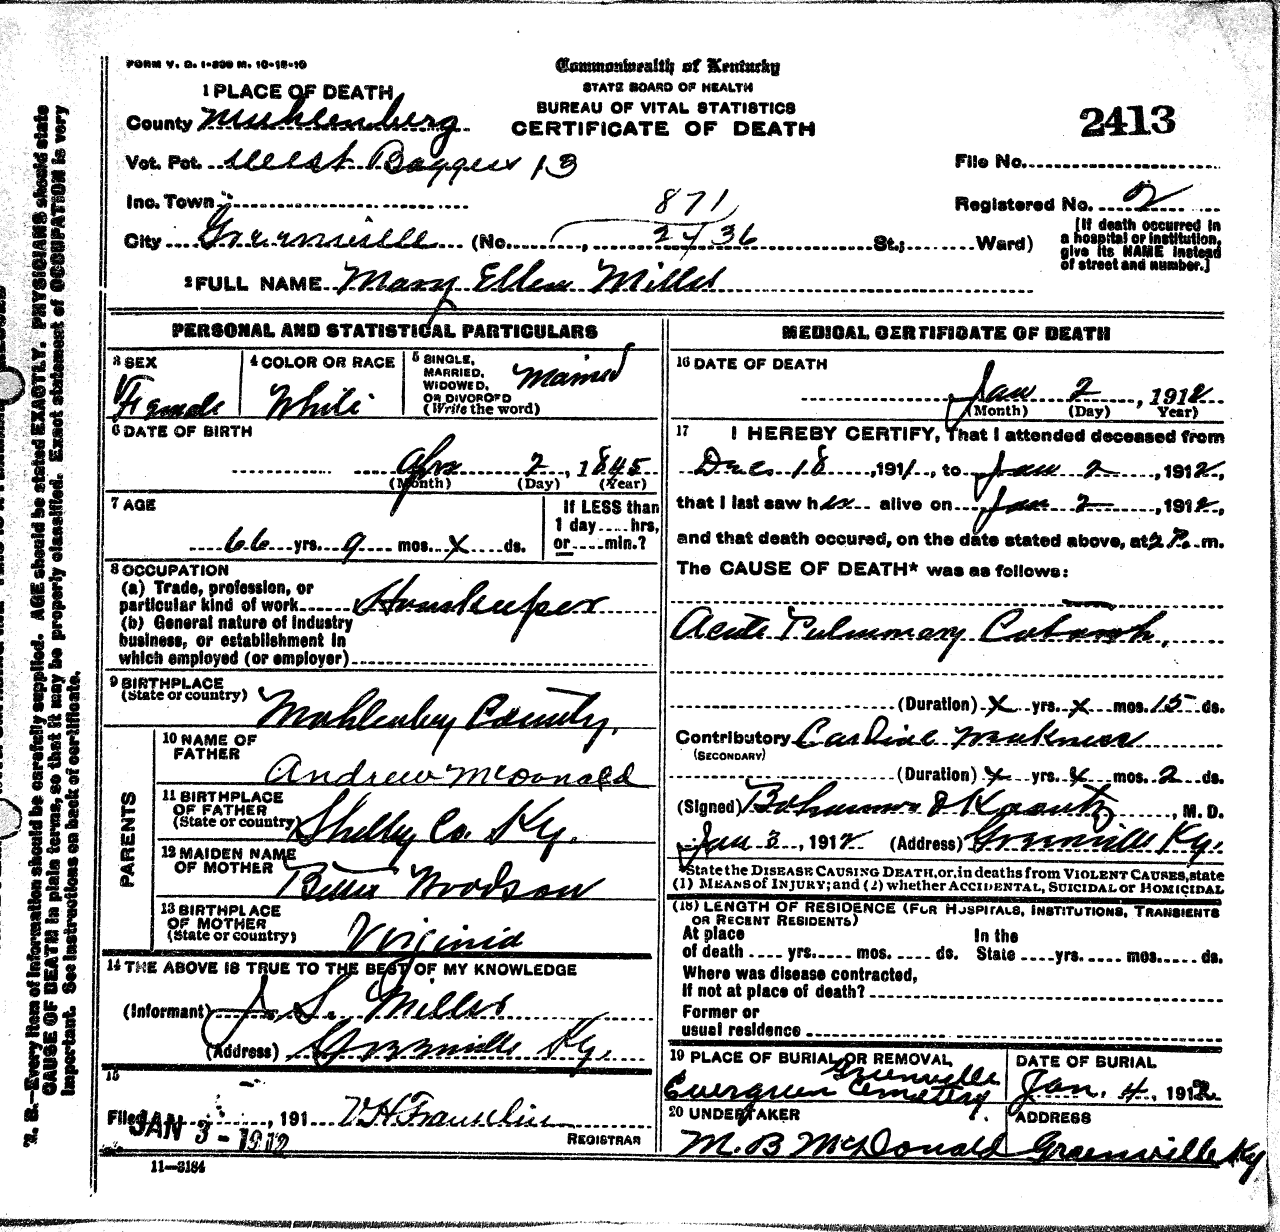 FORM V. S. 1-200 M. 10-15-10
Commonwealth of Kentucky
STATE BOARD OF HEALTH
BUREAU OF VITAL STATISTICS
CERTIFICATE OF DEATH
2413
1 PLACE OF DEATH
County Muhlenberg
Vot. Pct. West Boggess 13
File No.
Inc. Town
871
Registered No. 2
City Greenville (No. , 2736 St.; Ward)
[If death occurred in
a hospital or institution,
give its NAME instead
of street and number.]
2 FULL NAME Mary Ellen Miller
PERSONAL AND STATISTICAL PARTICULARS
3 SEX
Female
4 COLOR OR RACE
White
5 SINGLE,
MARRIED,
WIDOWED,
OR DIVORCED
(Write the word)
Married
6 DATE OF BIRTH
Apr 2, 1845
(Month) (Day) (Year)
7 AGE
66 yrs. 9 mos. x ds.
If LESS than
1 day....hrs,
or....min.?
8 OCCUPATION
(a) Trade, profession, or
particular kind of work Housekeeper
(b) General nature of industry
business, or establishment in
which employed (or employer)
9 BIRTHPLACE
(State or country) Muhlenberg County,
PARENTS
10 NAME OF
FATHER
Andrew McDonald
11 BIRTHPLACE
OF FATHER
(State or country) Shelby Co. Ky.
12 MAIDEN NAME
OF MOTHER
Woodson
13 BIRTHPLACE
OF MOTHER
(State or country) Virginia
14 THE ABOVE IS TRUE TO THE BEST OF MY KNOWLEDGE
(Informant) J. S. Miller
(Address) Greenville Ky.
15
Filed JAN 3 - 1912, 191 V H Franklin
REGISTRAR
11-3184
MEDICAL CERTIFICATE OF DEATH
16 DATE OF DEATH
Jan 2, 1912
(Month) (Day) Year)
17 I HEREBY CERTIFY, That I attended deceased from
Dec 18, 1911, to Jan 2, 1912,
that I last saw her alive on Jan 2, 1912,
and that death occured, on the date stated above, at 2 P. m.
The CAUSE OF DEATH* was as follows:
Acute Pulmonary Catarrh,
(Duration) x yrs. x mos. 15 ds.
Contributory Cardiac Weakness
(SECONDARY)
(Duration) x yrs. x mos. 2 ds.
(Signed) , M. D.
Jan 3, 1912 (Address) Greenville Ky.
*State the DISEASE CAUSING DEATH, or, in deaths from VIOLENT CAUSES, state
(1) MEANS of INJURY; and (2) whether ACCIDENTAL, SUICIDAL or HOMICIDAL
(18) LENGTH OF RESIDENCE (FOR HOSPITALS, INSTITUTIONS, TRANSIENTS
OR RECENT RESIDENTS)
At place In the
of death .... yrs. .... mos. .... ds. State .... yrs. .... mos. .... ds.
Where was disease contracted,
If not at place of death?
Former or
usual residence
19 PLACE OF BURIAL OR REMOVAL
Greenville
Evergreen Cemetery
DATE OF BURIAL
Jan. 4, 1912
20 UNDERTAKER
M. B McDonald
ADDRESS
Greenville Ky
N. B.—Every item of information should be carefully supplied. AGE should be stated EXACTLY. PHYSICIANS should state
CAUSE OF DEATH in plain terms, so that it may be properly classified. Exact statement of OCCUPATION is very
important. See instructions on back of certificate.